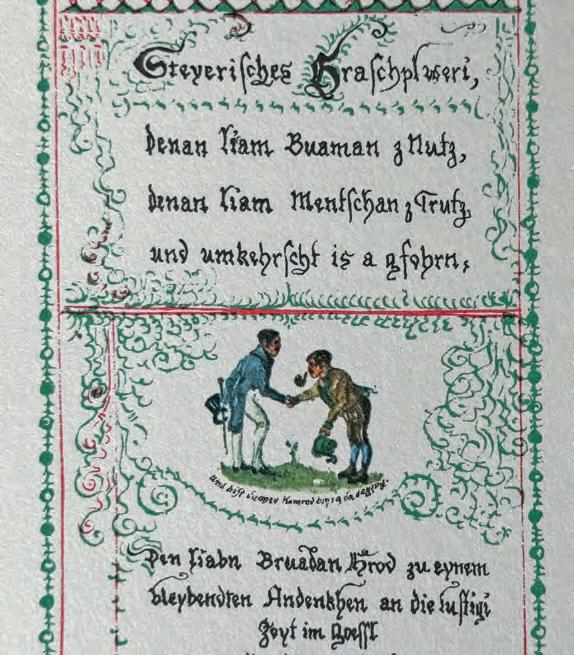 Steyerisches Graschplweri,
denan liam Buaman z Nutz,
denan liam Mentschan z Trutz,
und umkehrscht is a gfohrn,
Den liabn Bruadan Krod zu eynem
bleybendten Andenkhen an die lustigi
Zeyt im Goessl